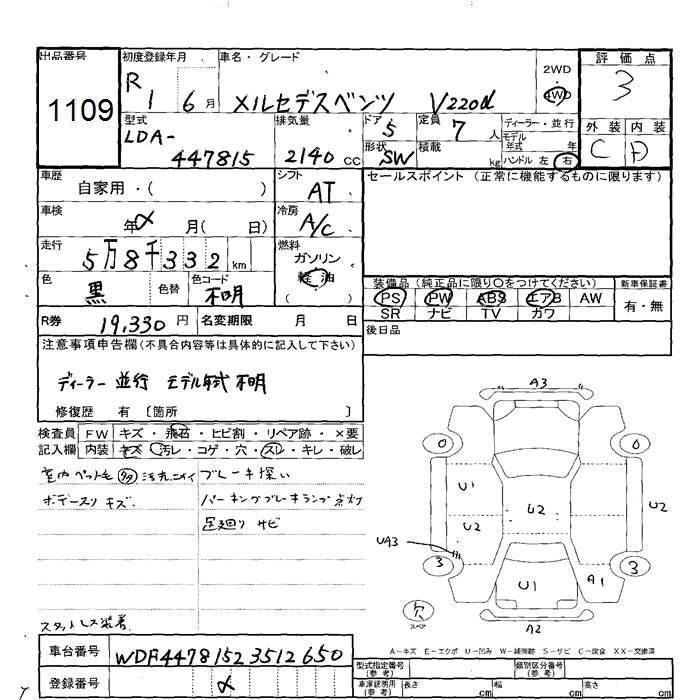 出品番号 初度登録年月 車名・グレード 2WD 4WD 評価点
1109 R1 6月 メルセデスベンツ V220d 3
型式 排気量 ドア 定員 ディーラー・並行 外装 内装
LDA-447815 2140 CC 5 7人 モデル年式 年 C D
形状 SW 積載 kg ハンドル 左 右
車歴 自家用・( ) シフト AT セールスポイント (正常に機能するものに限ります)
車検 年 月( 日) 冷房 A/C
走行 5万8千332 km 燃料 ガソリン 軽油 ( )
色 黒 色替 色コード 不明
装備品 (純正品に限り○をつけてください) 新車保証書
PS PW ABS エアB AW 有・無
SR ナビ TV カワ
R券 19,330円 名変期限 月 日
後日品
注意事項申告欄(不具合内容等は具体的に記入して下さい)
ディーラー 並行 モデル年式 不明
修復歴 有 〔箇所 〕
検査員 FW キズ・飛石・ヒビ割・リペア跡・×要
記入欄 内装 キズ・汚れ・コゲ・穴・スレ・キレ・破レ
室内ペット毛 多 汚れニオイ ブレーキ深い
ボデースリキズ パーキングブレーキランプ点灯
足廻りサビ
スタットレス装着
A3
0 0
U1 U2 U2
U2
UA3
3 3
U1 A1
欠
スペア
A2
A-キズ E-エクボ U-凹み W-補修跡 S-サビ C-腐食 XX-交換済
車台番号 WDF44781523512650
登録番号
型式指定番号 (参考) 類別区分番号 (参考)
車庫証明用 (参考) 長さ cm 幅 cm 高さ cm